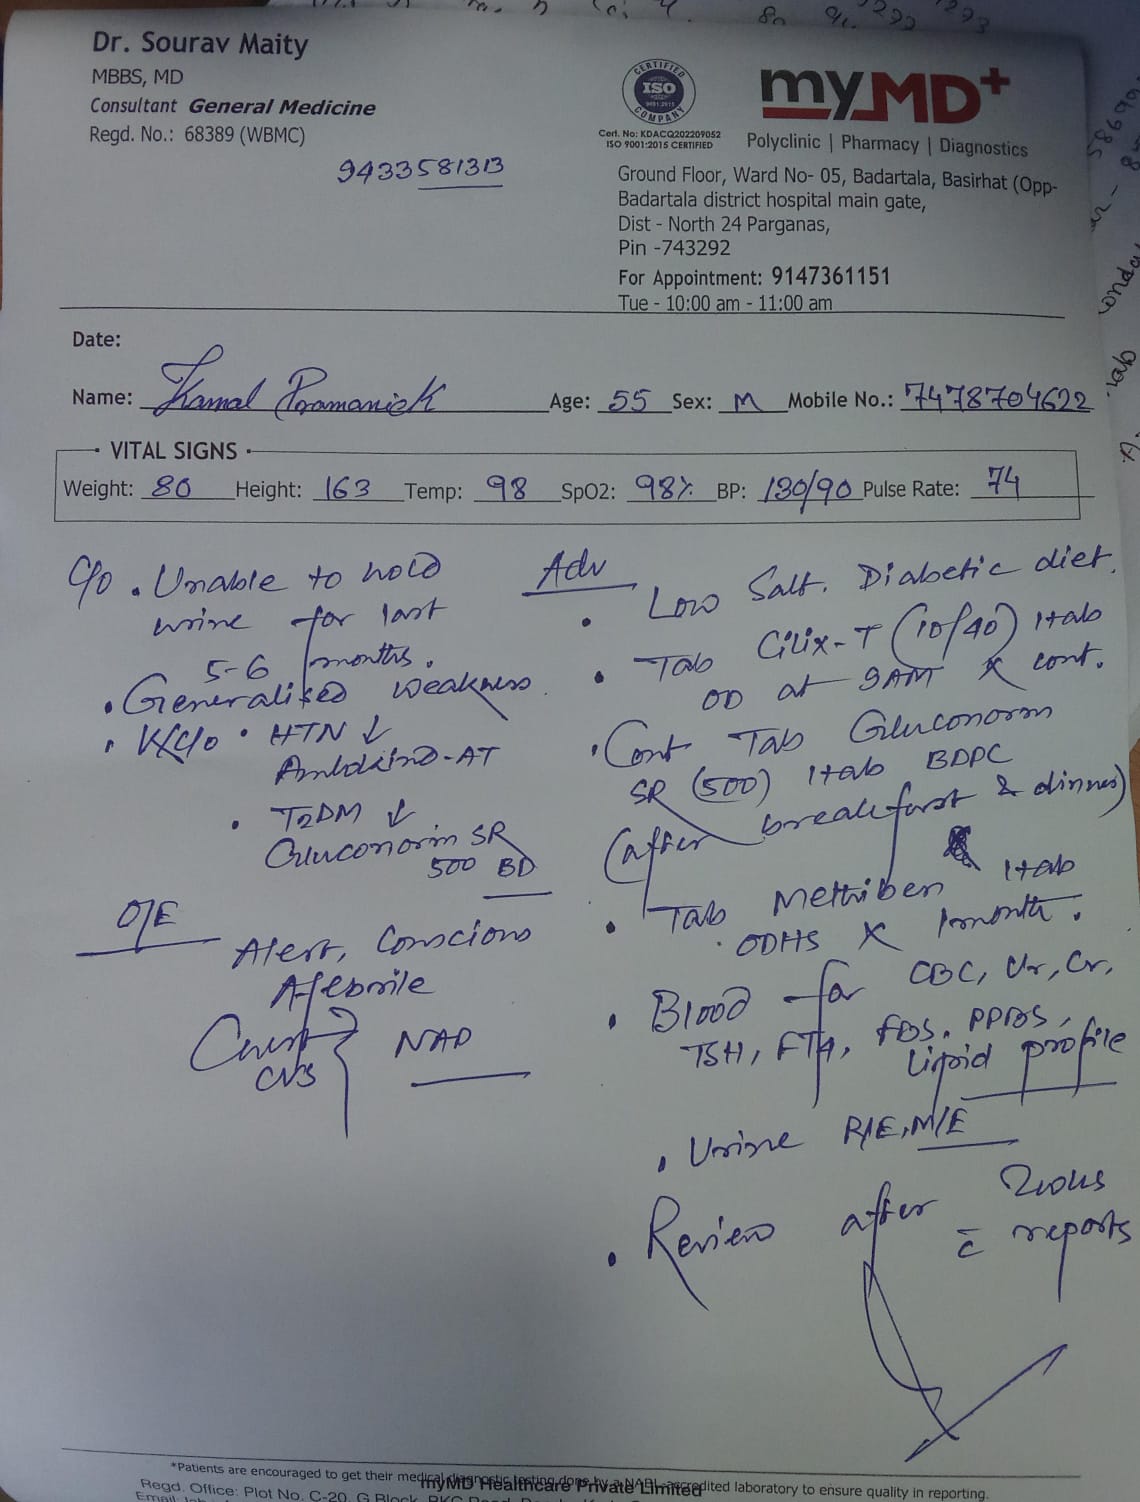 Dr. Sourav Maity
MBBS, MD
Consultant General Medicine
Regd. No.: 68389 (WBMC)
9433581313
CERTIFIED
ISO
9001:2015
COMPANY
Cert. No: KDACQ202209052
ISO 9001:2015 CERTIFIED
myMD+
Polyclinic | Pharmacy | Diagnostics
Ground Floor, Ward No- 05, Badartala, Basirhat (Opp-
Badartala district hospital main gate,
Dist - North 24 Parganas,
Pin -743292
For Appointment: 9147361151
Tue - 10:00 am - 11:00 am
Date:
Name: Kamal Pramanick Age: 55 Sex: M Mobile No.: 7478704622
VITAL SIGNS
Weight: 80 Height: 163 Temp: 98 SpO2: 98% BP: 130/90 Pulse Rate: 74
C/o . Unable to hold
urine for last
5-6 months.
. Generalised weakness.
. K/C/o . HTN ↓
Amlokind-AT
. T2DM ↓
Gluconorm SR
500 BD
O/E
Alert, Conscious
Afebrile
Chest
CVS } NAD
Adv
. Low Salt. Diabetic diet.
. Tab Cilix-T (10/40) 1tab
OD at 9AM x cont.
. Cont Tab Gluconorm
SR (500) 1tab BDPC
(after breakfast & dinner)
. Tab Methiben 1tab
ODHS x 1month.
. Blood for CBC, Ur, Cr,
TSH, FT4, FBS, PPBS,
Lipid profile
. Urine R/E, M/E
. Review after 2weeks
c̄ reports
*Patients are encouraged to get their medical diagnostic testing done by a NABL accredited laboratory to ensure quality in reporting.
myMD Healthcare Private Limited
Regd. Office: Plot No. C-20, G Block,